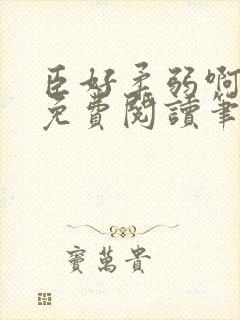 臣好柔弱啊
免費閱讀筆
竇萬貴